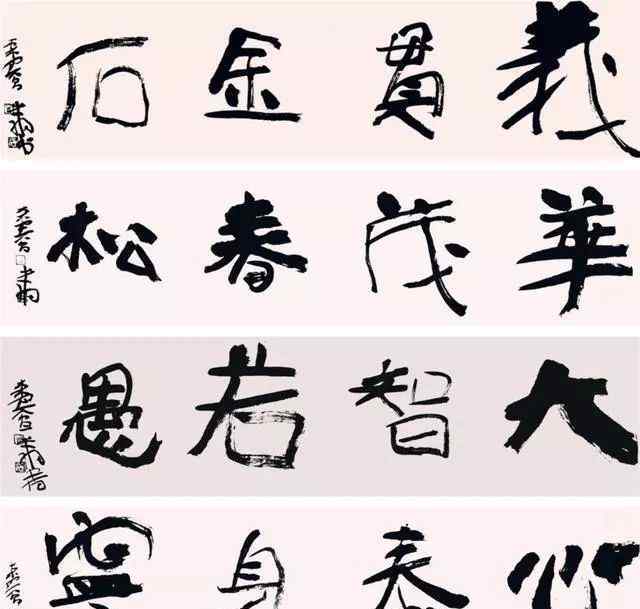 義貫金石
華茂春松
大智若愚
心泰身寧